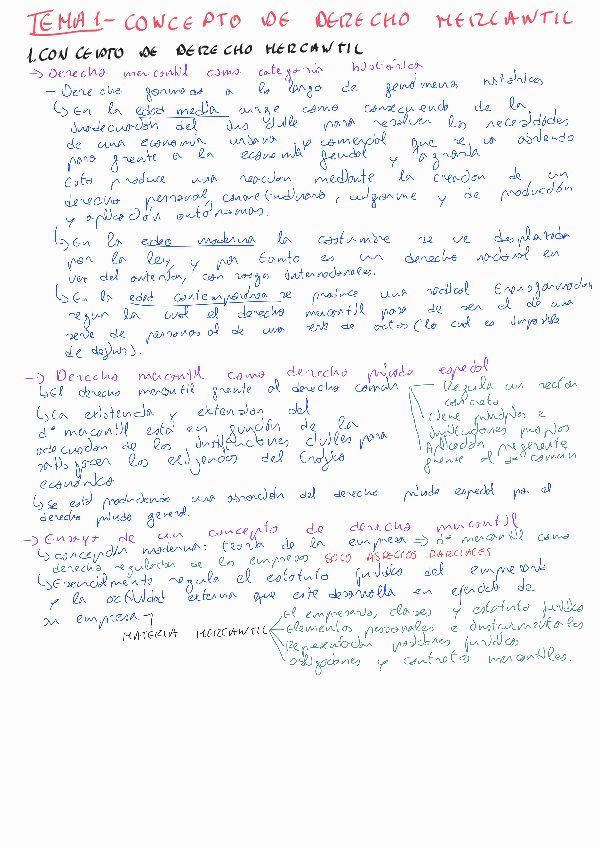 TEMA 1- CONCEPTO DE DERECHO MERCANTIL
1. CONCEPTO DE DERECHO MERCANTIL
→ Derecho mercantil como categoría histórica
- Derecho formado a lo largo de fenómenos históricos
↳ En la edad media surge como consecuencia de la
inadecuación del ius civile para resolver las necesidades
de una economía urbana y comercial que se va abriendo
paso frente a la economía feudal y agraria
Esto produce una reacción mediante la creación de un
derecho personal, consuetudinario, uniforme y de producción
y aplicación autónomas.
↳ En la edad moderna la costumbre se ve desplazada
por la ley y por tanto es un derecho nacional en
vez del anterior, con rasgos internacionales.
↳ En la edad contemporánea se produce una radical transformación
según la cual el derecho mercantil pasa de ser el de una
serie de personas al de una serie de actos (lo cual es imposible
de definir).
→ Derecho mercantil como derecho privado especial
↳ El derecho mercantil frente al derecho común
Regula un sector
concreto
Tiene principios e
instituciones propios
Aplicación preferente
frente al dº común
↳ La existencia y extensión del
dº mercantil está en función de la
adecuación de las instituciones civiles para
satisfacer las exigencias del tráfico
económico
↳ Se está produciendo una absorción del derecho privado especial por el
derecho privado general.
→ Ensayo de un concepto de derecho mercantil
↳ Concepción moderna: teoría de la empresa ⇒ dº mercantil como
derecho regulador de las empresas SOLO ASPECTOS PARCIALES
↳ Esencialmente regula el estatuto jurídico del empresario
y la actividad externa que este desarrolla en ejercicio de
su empresa
MATERIA MERCANTIL
El empresario, clases y estatuto jurídico
Elementos personales e instrumentales
posiciones jurídicas
Obligaciones y contratos mercantiles.